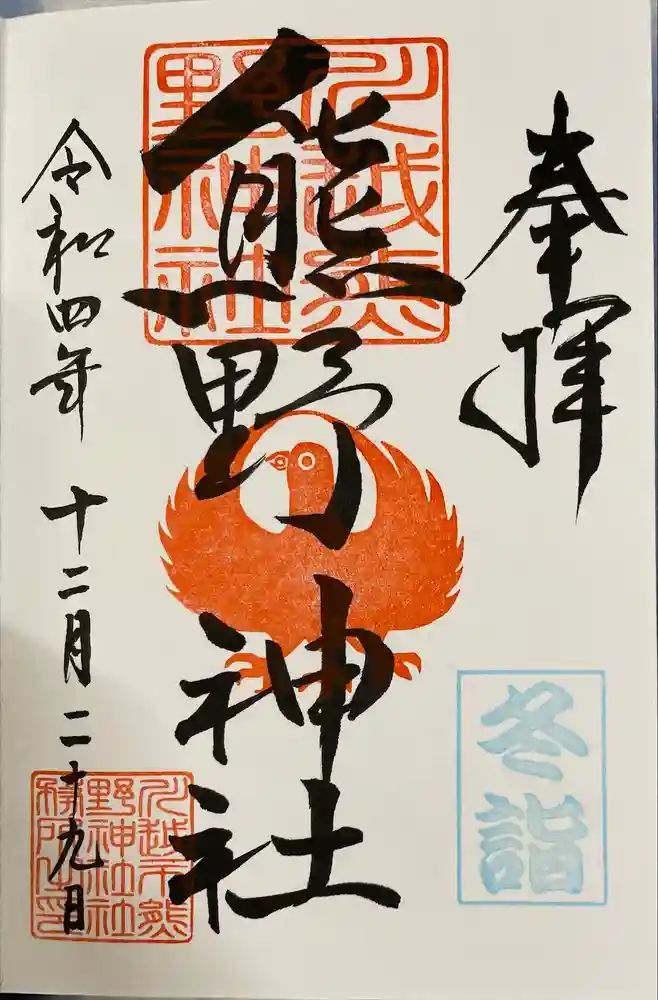 奉拝
冬詣
川越熊
野神社
熊野神社
令和四年 十二月 二十九日
川越市熊
野神社社
務所之印